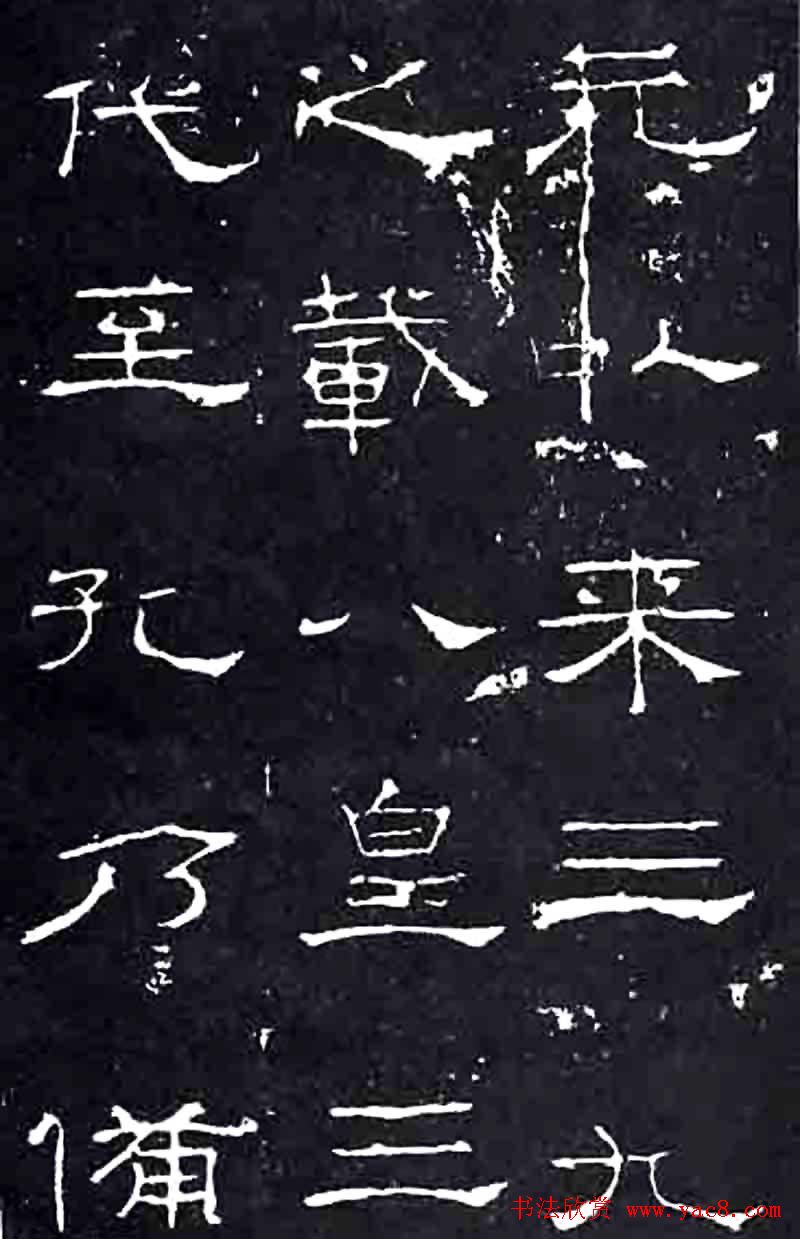 元以来三九
之載八皇三
代至孔乃備
书法欣赏 www.yac8.com